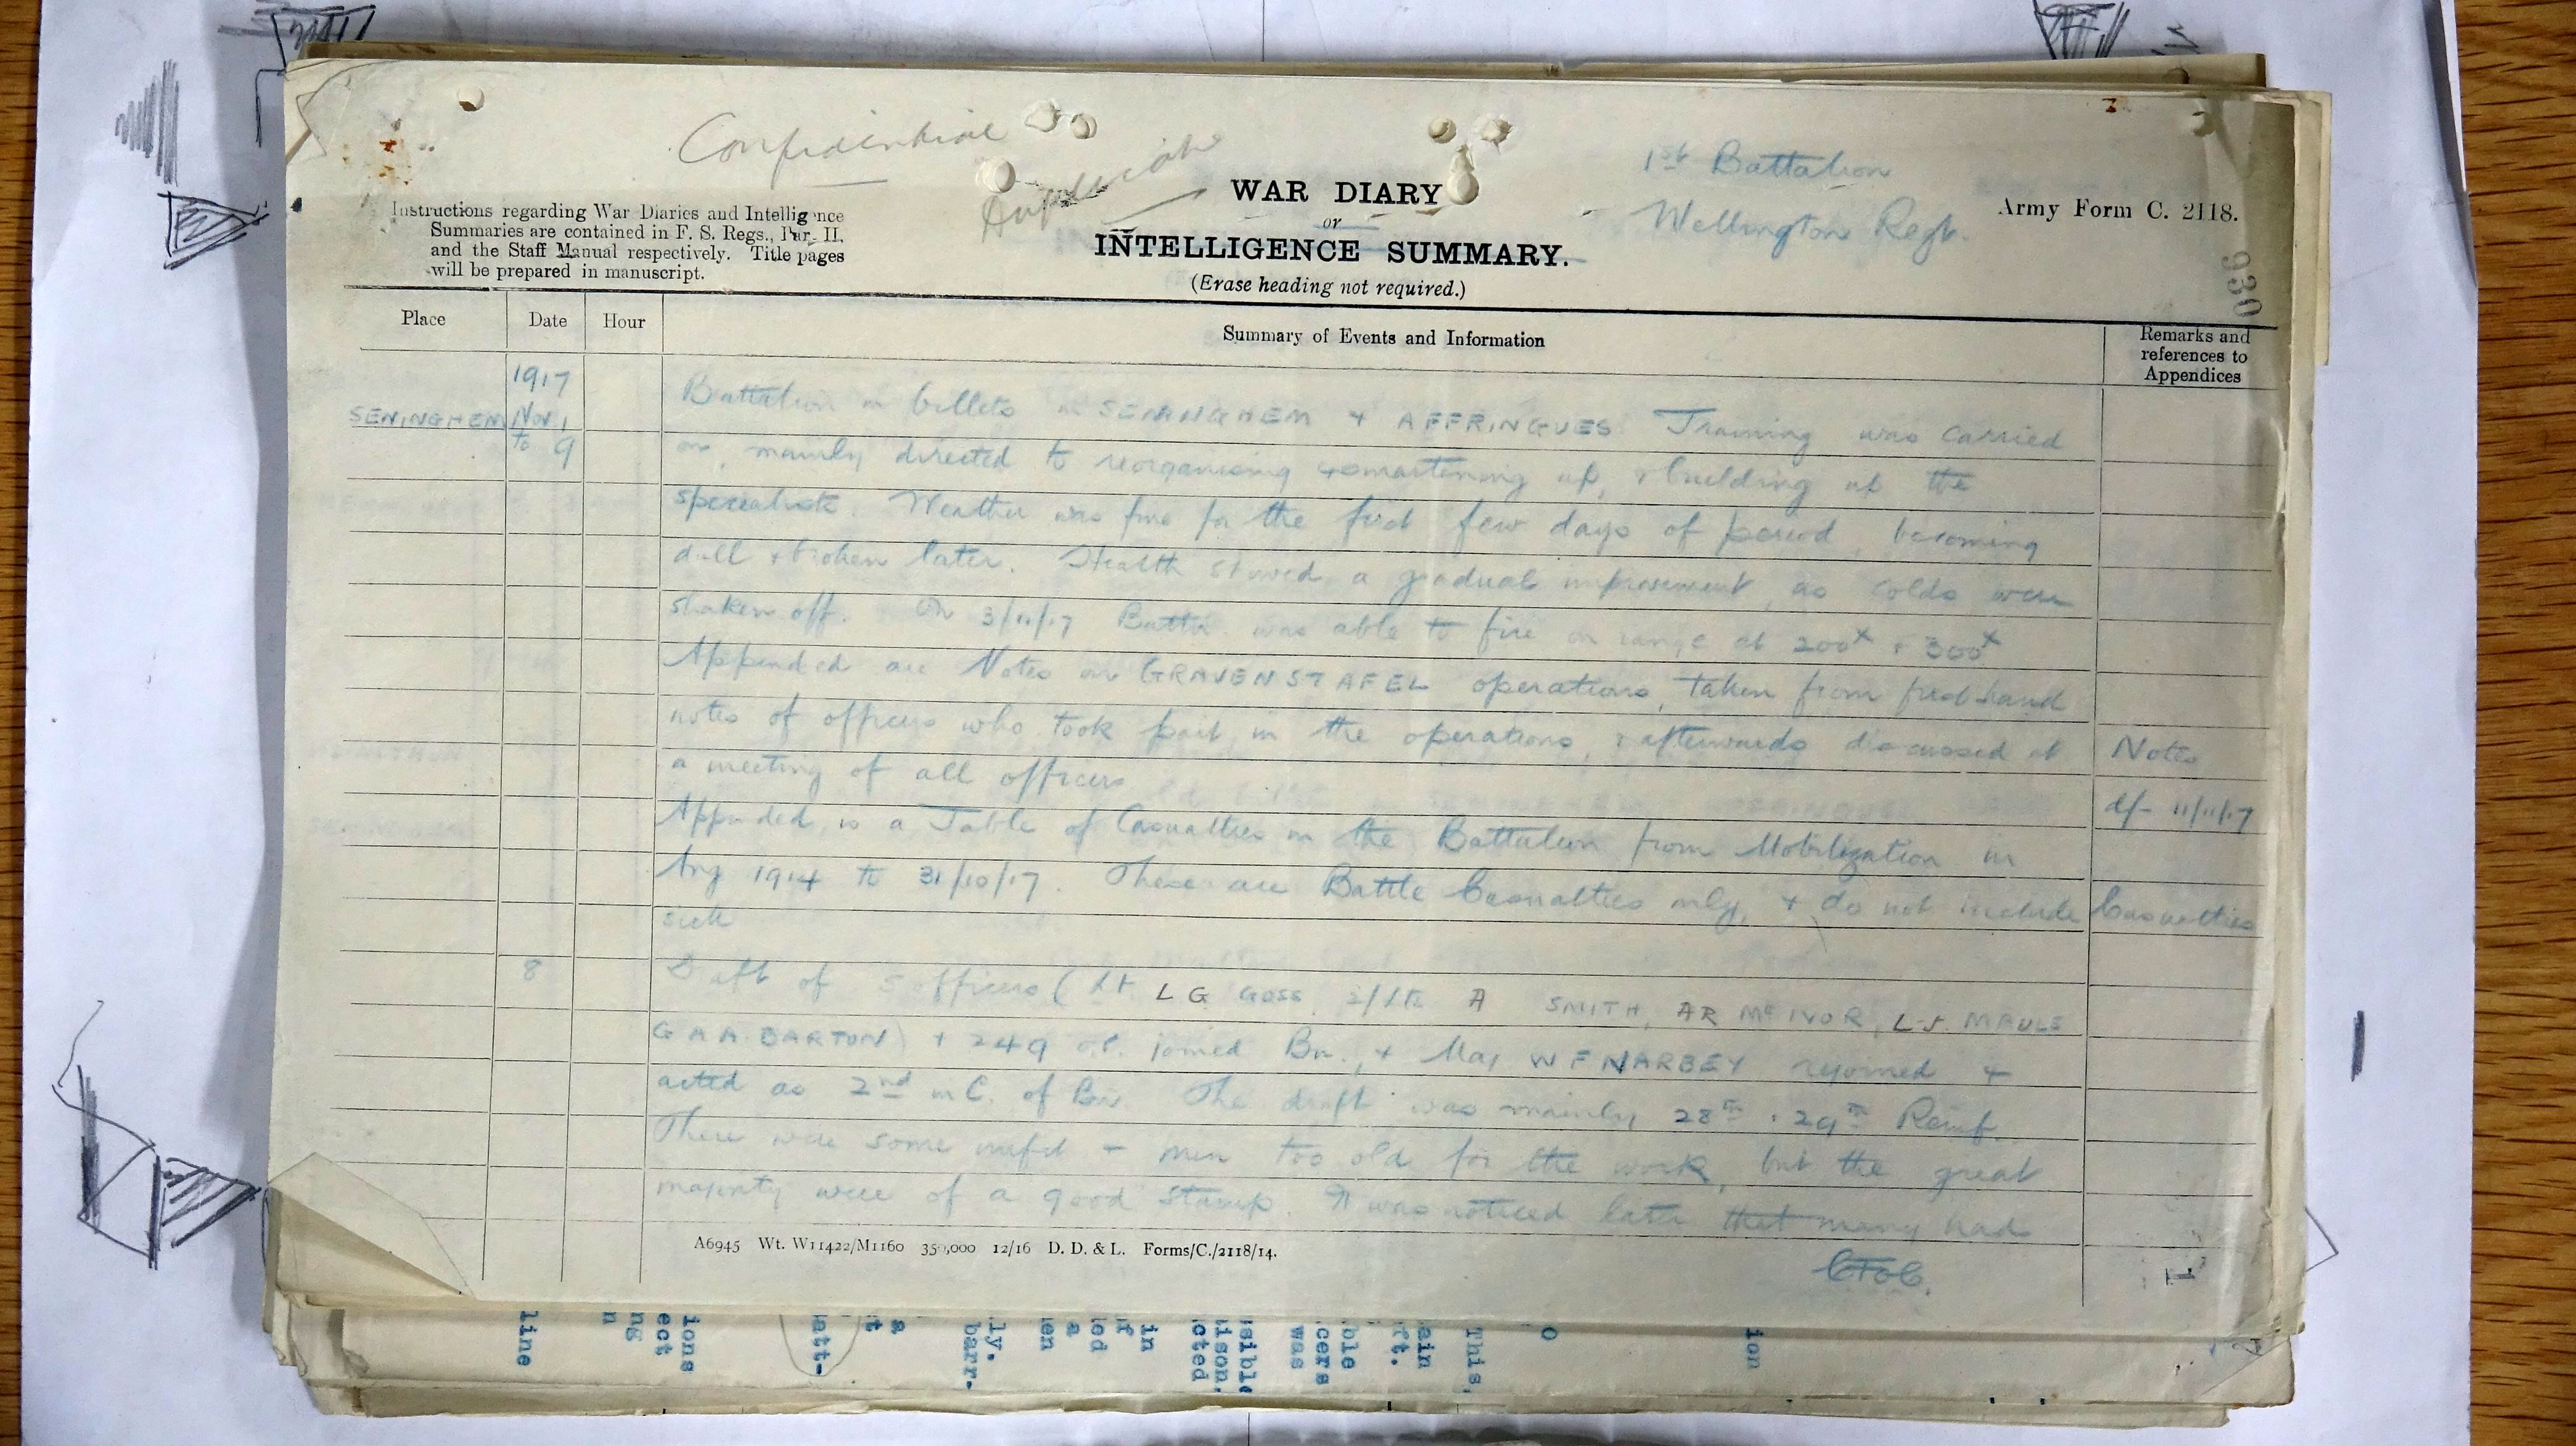 Confidential
Duplicate
1st Battalion
Wellington Regt.
Army Form C. 2118.
930
WAR DIARY
or
INTELLIGENCE SUMMARY.
(Erase heading not required.)
Instructions regarding War Diaries and Intelligence
Summaries are contained in F. S. Regs., Par. II.
and the Staff Manual respectively. Title pages
will be prepared in manuscript.
Place Date Hour Summary of Events and Information Remarks and
references to
Appendices
1917
SENINGHEM Nov. 1
to 9
Battalion in billets in SENINGHEM & AFFRINGUES. Training was carried
on, mainly directed to reorganising & smartening up, & building up the
specialists. Weather was fine for the first few days of period, becoming
dull & broken later. Health showed a gradual improvement, as colds were
shaken off. On 3/11/17 Battn. was able to fire on range at 200x & 300x
Appended are Notes on GRAVENSTAFEL operations, taken from first hand
notes of officers who took part in the operations, & afterwards discussed at Notes
a meeting of all officers
d/- 11/11/17
Appended is a Table of Casualties in the Battalion from Mobilization in
Aug 1914 to 31/10/17. These are Battle Casualties only, & do not include Casualties
sick
8 Draft of 5 officers (Lt L G GOSS 2/Lts A SMITH, AR McIVOR, L.J. MAULE
G A A. BARTON) + 249 o.r. joined Bn., & Maj W F NARBEY rejoined &
acted as 2nd in C. of Bn. The draft was mainly 28th & 29th Reinf.
There were some unfit - men too old for the work, but the great
majority were of a good stamp. It was noticed later that many had
A6945 Wt. W11422/M1160 350,000 12/16 D. D. & L. Forms/C./2118/14.
1
line
n
ng
ect
ions
att-
t
a
barr-
ly.
en
a
ed
f
in
cted
ison.
sible
was
cers
ble
ft.
ain
This,
o
ion